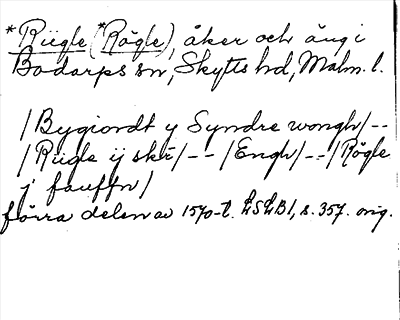 *Riigle (*Rögle), åker och äng i
Bodarps sn, Skytts hd, Malm. l.
/Bygiordt y Syndre wongh/--
/Riigle ij skr/--/Engh/--/Rögle
j fauffn/
förra delen av 1570-t. LSLB1, s. 357. orig.